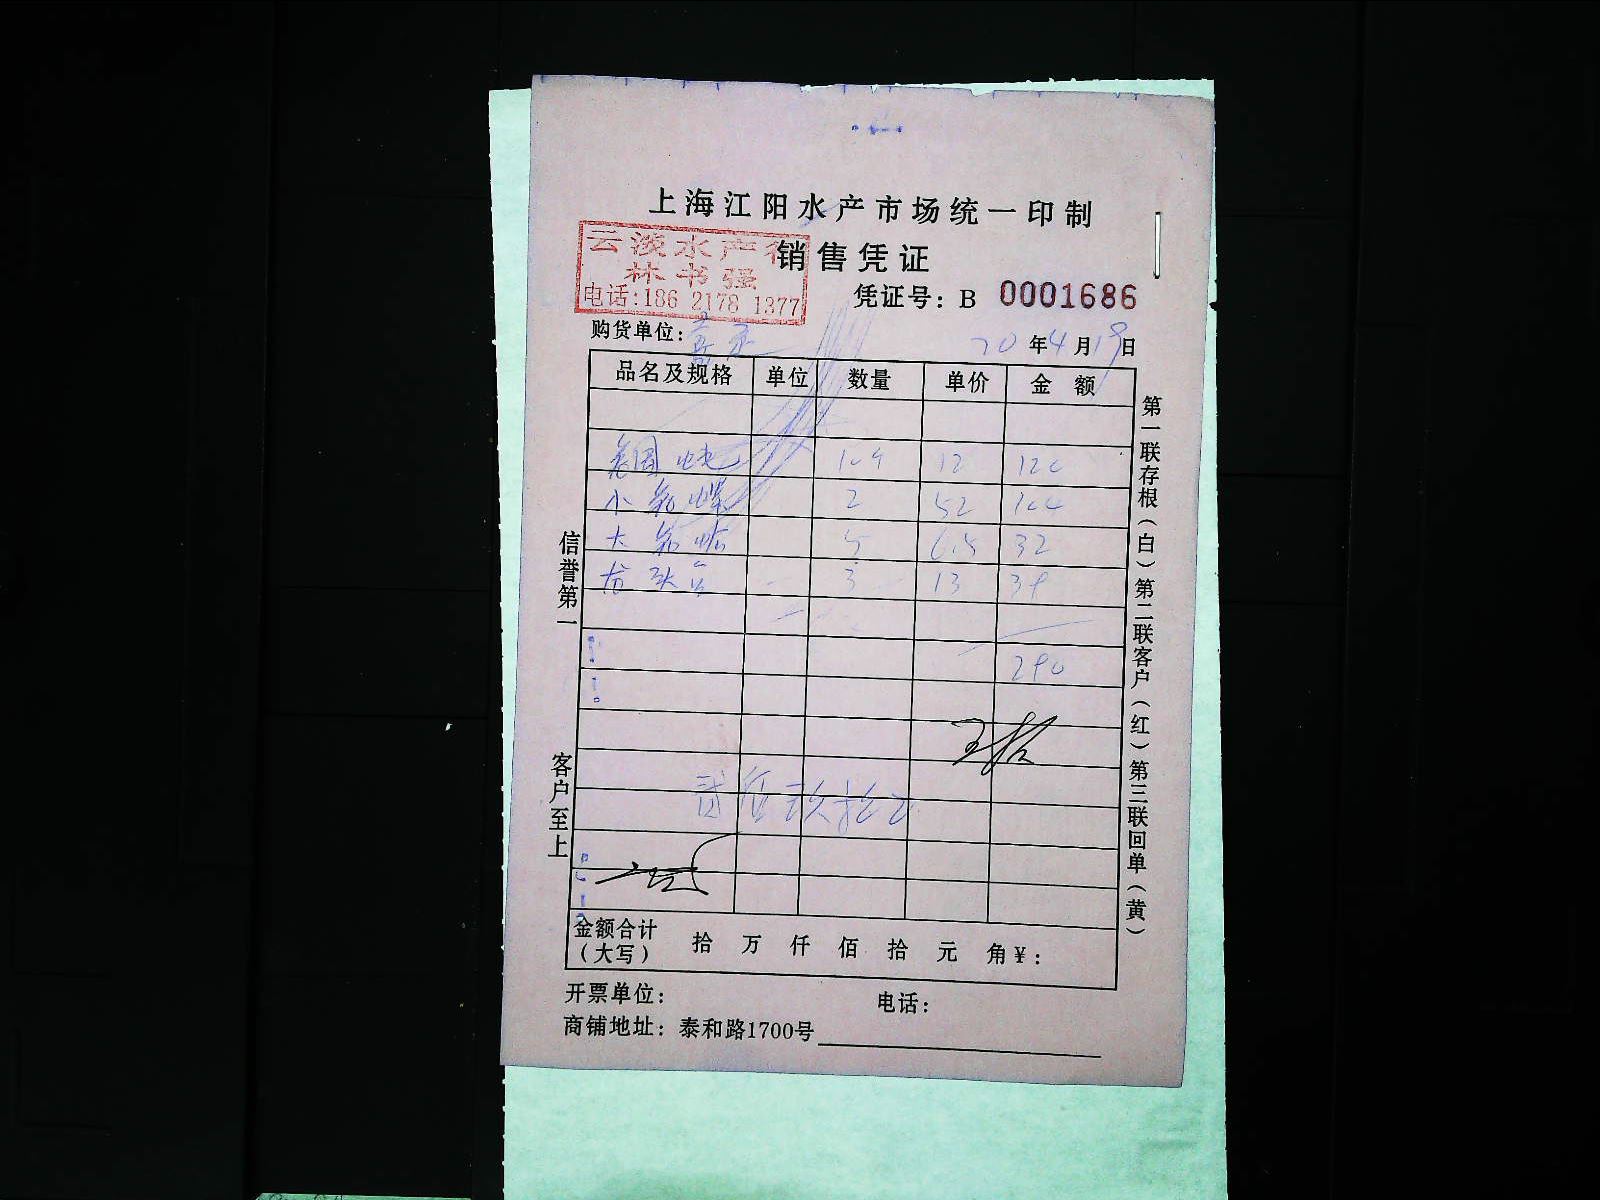 上海江阳水产市场统一印制
云淡水产行
销售凭证
林书强
电话:186 2178 1377
凭证号: B 0001686
购货单位:
20年4月19日
品名及规格 单位 数量 单价 金额
12 120
小 2 52 104
大 5 6.5 32
3 13 39
290
贰佰玖拾元
金额合计(大写) 拾 万 仟 佰 拾 元 角¥:
开票单位: 电话:
商铺地址: 泰和路1700号
信誉第一
客户至上
第一联存根(白)第二联客户(红)第三联回单(黄)